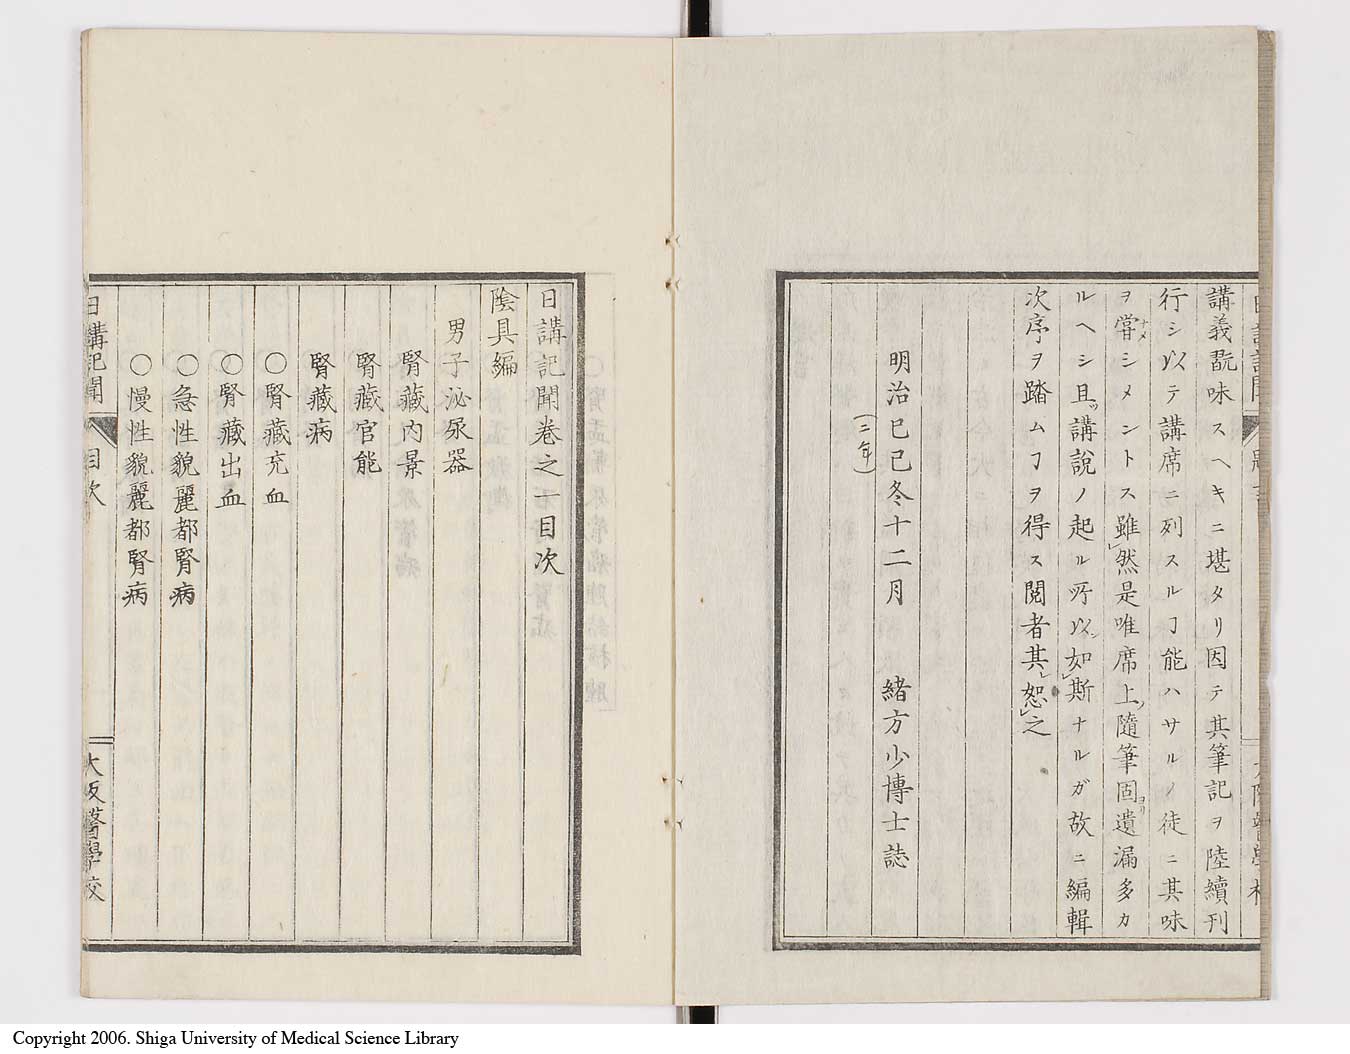 講義翫味スヘキニ堪タリ因テ其筆記ヲ陸續刊
行シ以テ講席ニ列スルヿ能ハサルノ徒ニ其味
ヲ甞ナメシメントス雖然是唯席上ノ隨筆固ヨリ遺漏多カ
ルヘシ且ツ講説ノ起ル所以シ如斯ナルガ故ニ編輯
次序ヲ踏ムヿヲ得ス閲者其恕之
明治己巳冬十二月 緒方少博士誌
(二年)
日講記聞卷之一目次
陰具編
男子泌尿器
腎藏内景
腎藏官能
腎藏病
○腎藏充血
○腎藏出血
○急性貌麗都腎病
○慢性貌麗都腎病
日講記聞 目次
大坂醫學校
Copyright 2006. Shiga University of Medical Science Library